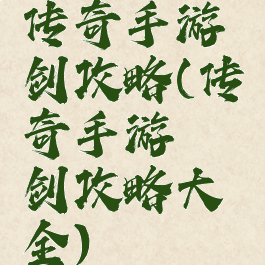 传奇手游
剑攻略(传
奇手游
剑攻略大
全)